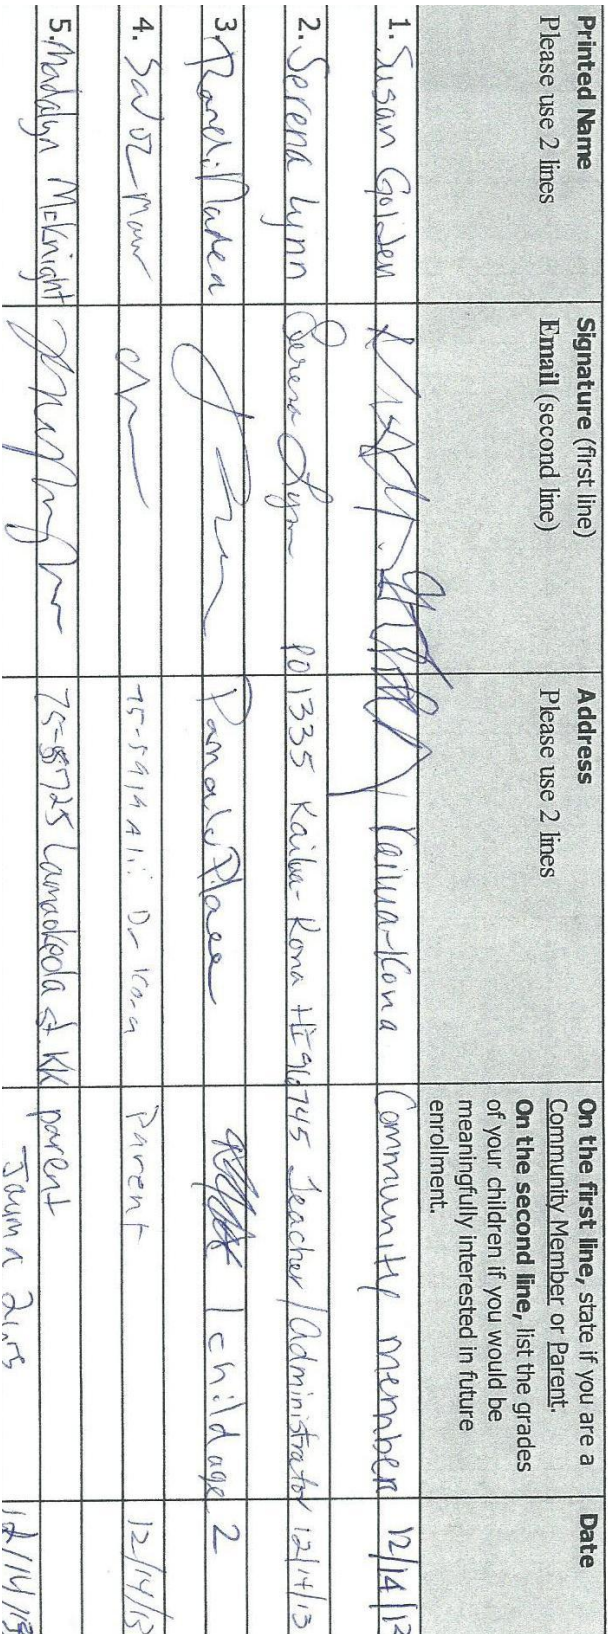 Printed Name
Please use 2 lines
Signature (first line)
Email (second line)
Address
Please use 2 lines
On the first line, state if you are a
Community Member or Parent.
On the second line, list the grades
of your children if you would be
meaningfully interested in future
enrollment.
Date
1. Susan Golden Kailua-Kona Community member 12/14/13
2. Serena Lynn Serena Lynn PO 1335 Kailua-Kona HI 96745 Teacher/Administrator 12/14/13
3. Randi Place 1 child age 2
4. Dr Kona Parent 12/14/13
5. Madalyn McKnight KK parent 12/14/13